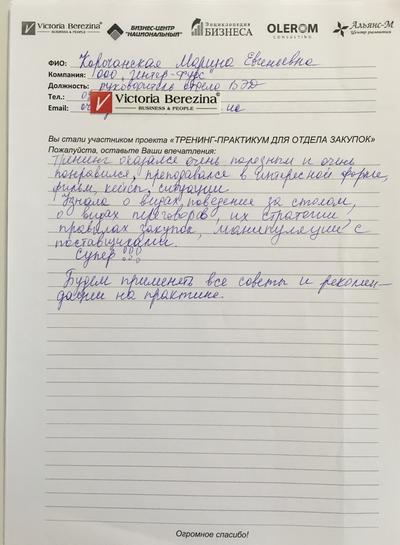 Victoria Berezina
BUSINESS & PEOPLE
БИЗНЕС-ЦЕНТР
"НАЦИОНАЛЬНЫЙ"
Энциклопедия
БИЗНЕСА
OLEROM
CONSULTING
Альянс-М
Центр развития
ФИО: Корчанская Марина Евгеньевна
Компания: ООО "Интер-Фурс"
Должность: руководитель отдела ВЭД
Тел.:
Victoria Berezina
BUSINESS & PEOPLE
Email:
Вы стали участником проекта «ТРЕНИНГ-ПРАКТИКУМ ДЛЯ ОТДЕЛА ЗАКУПОК»
Пожалуйста, оставьте Ваши впечатления:
Тренинг оказался очень полезным и очень
понравился, преподавался в интересной форме,
фильм, кейсы, ситуации.
Узнала о видах поведение за столом,
о видах переговоров, их стратегии,
правилах закупок, манипуляции с
поставщиками.
Супер!!!
Будем применять все советы и рекомен-
дации на практике.
Огромное спасибо!